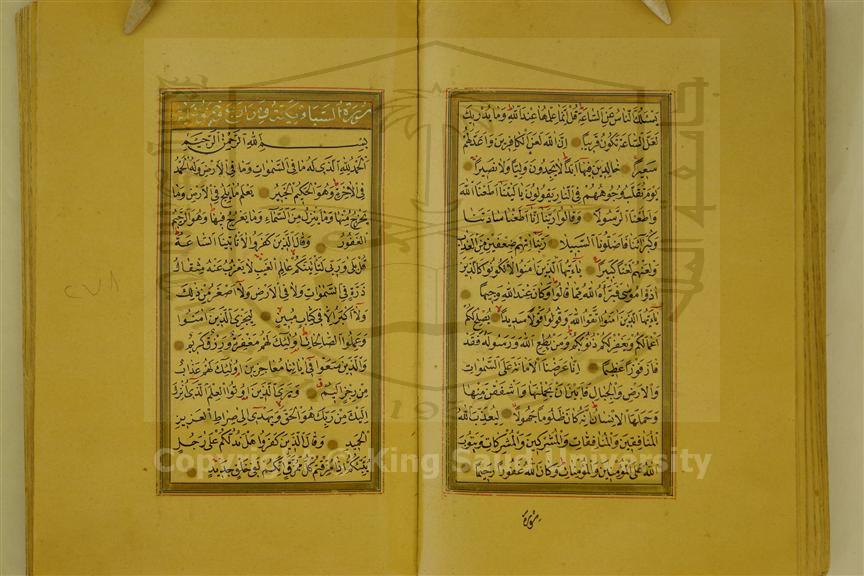 يسئلك الناس عن الساعة قل انما علمها عند الله وما يدريك
لعل الساعة تكون قريبا ان الله لعن الكافرين واعد لهم
سعيرا خالدين فيها ابدا لا يجدون وليا ولا نصيرا
يوم تقلب وجوههم في النار يقولون يا ليتنا اطعنا الله
واطعنا الرسولا وقالوا ربنا انا اطعنا سادتنا
وكبراءنا فاضلونا السبيلا ربنا اتهم ضعفين من العذاب
والعنهم لعنا كبيرا يا ايها الذين امنوا لا تكونوا كالذين
اذوا موسى فبراه الله مما قالوا وكان عند الله وجيها
يا ايها الذين امنوا اتقوا الله وقولوا قولا سديدا يصلح لكم
اعمالكم ويغفر لكم ذنوبكم ومن يطع الله ورسوله فقد
فاز فوزا عظيما انا عرضنا الامانة على السموات
والارض والجبال فابين ان يحملنها واشفقن منها
وحملها الانسان انه كان ظلوما جهولا ليعذب الله
المنافقين والمنافقات والمشركين والمشركات ويتوب
الله على المؤمنين والمؤمنات وكان الله غفورا رحيما
سورة
سورة السبا
بسم الله الرحمن الرحيم
الحمد لله الذي له ما في السموات وما في الارض وله الحمد
في الاخرة وهو الحكيم الخبير يعلم ما يلج في الارض وما
يخرج منها وما ينزل من السماء وما يعرج فيها وهو الرحيم
الغفور وقال الذين كفروا لا تاتينا الساعة
قل بلى وربي لتاتينكم عالم الغيب لا يعزب عنه مثقال
ذرة في السموات ولا في الارض ولا اصغر من ذلك
ولا اكبر الا في كتاب مبين ليجزي الذين امنوا
وعملوا الصالحات اولئك لهم مغفرة ورزق كريم
والذين سعوا في اياتنا معاجزين اولئك لهم عذاب
من رجز اليم ويرى الذين اوتوا العلم الذي انزل
اليك من ربك هو الحق ويهدي الى صراط العزيز
الحميد وقال الذين كفروا هل ندلكم على رجل
ينبئكم اذا مزقتم كل ممزق انكم لفي خلق جديد
٢٧٨
Copyright © King Saud University